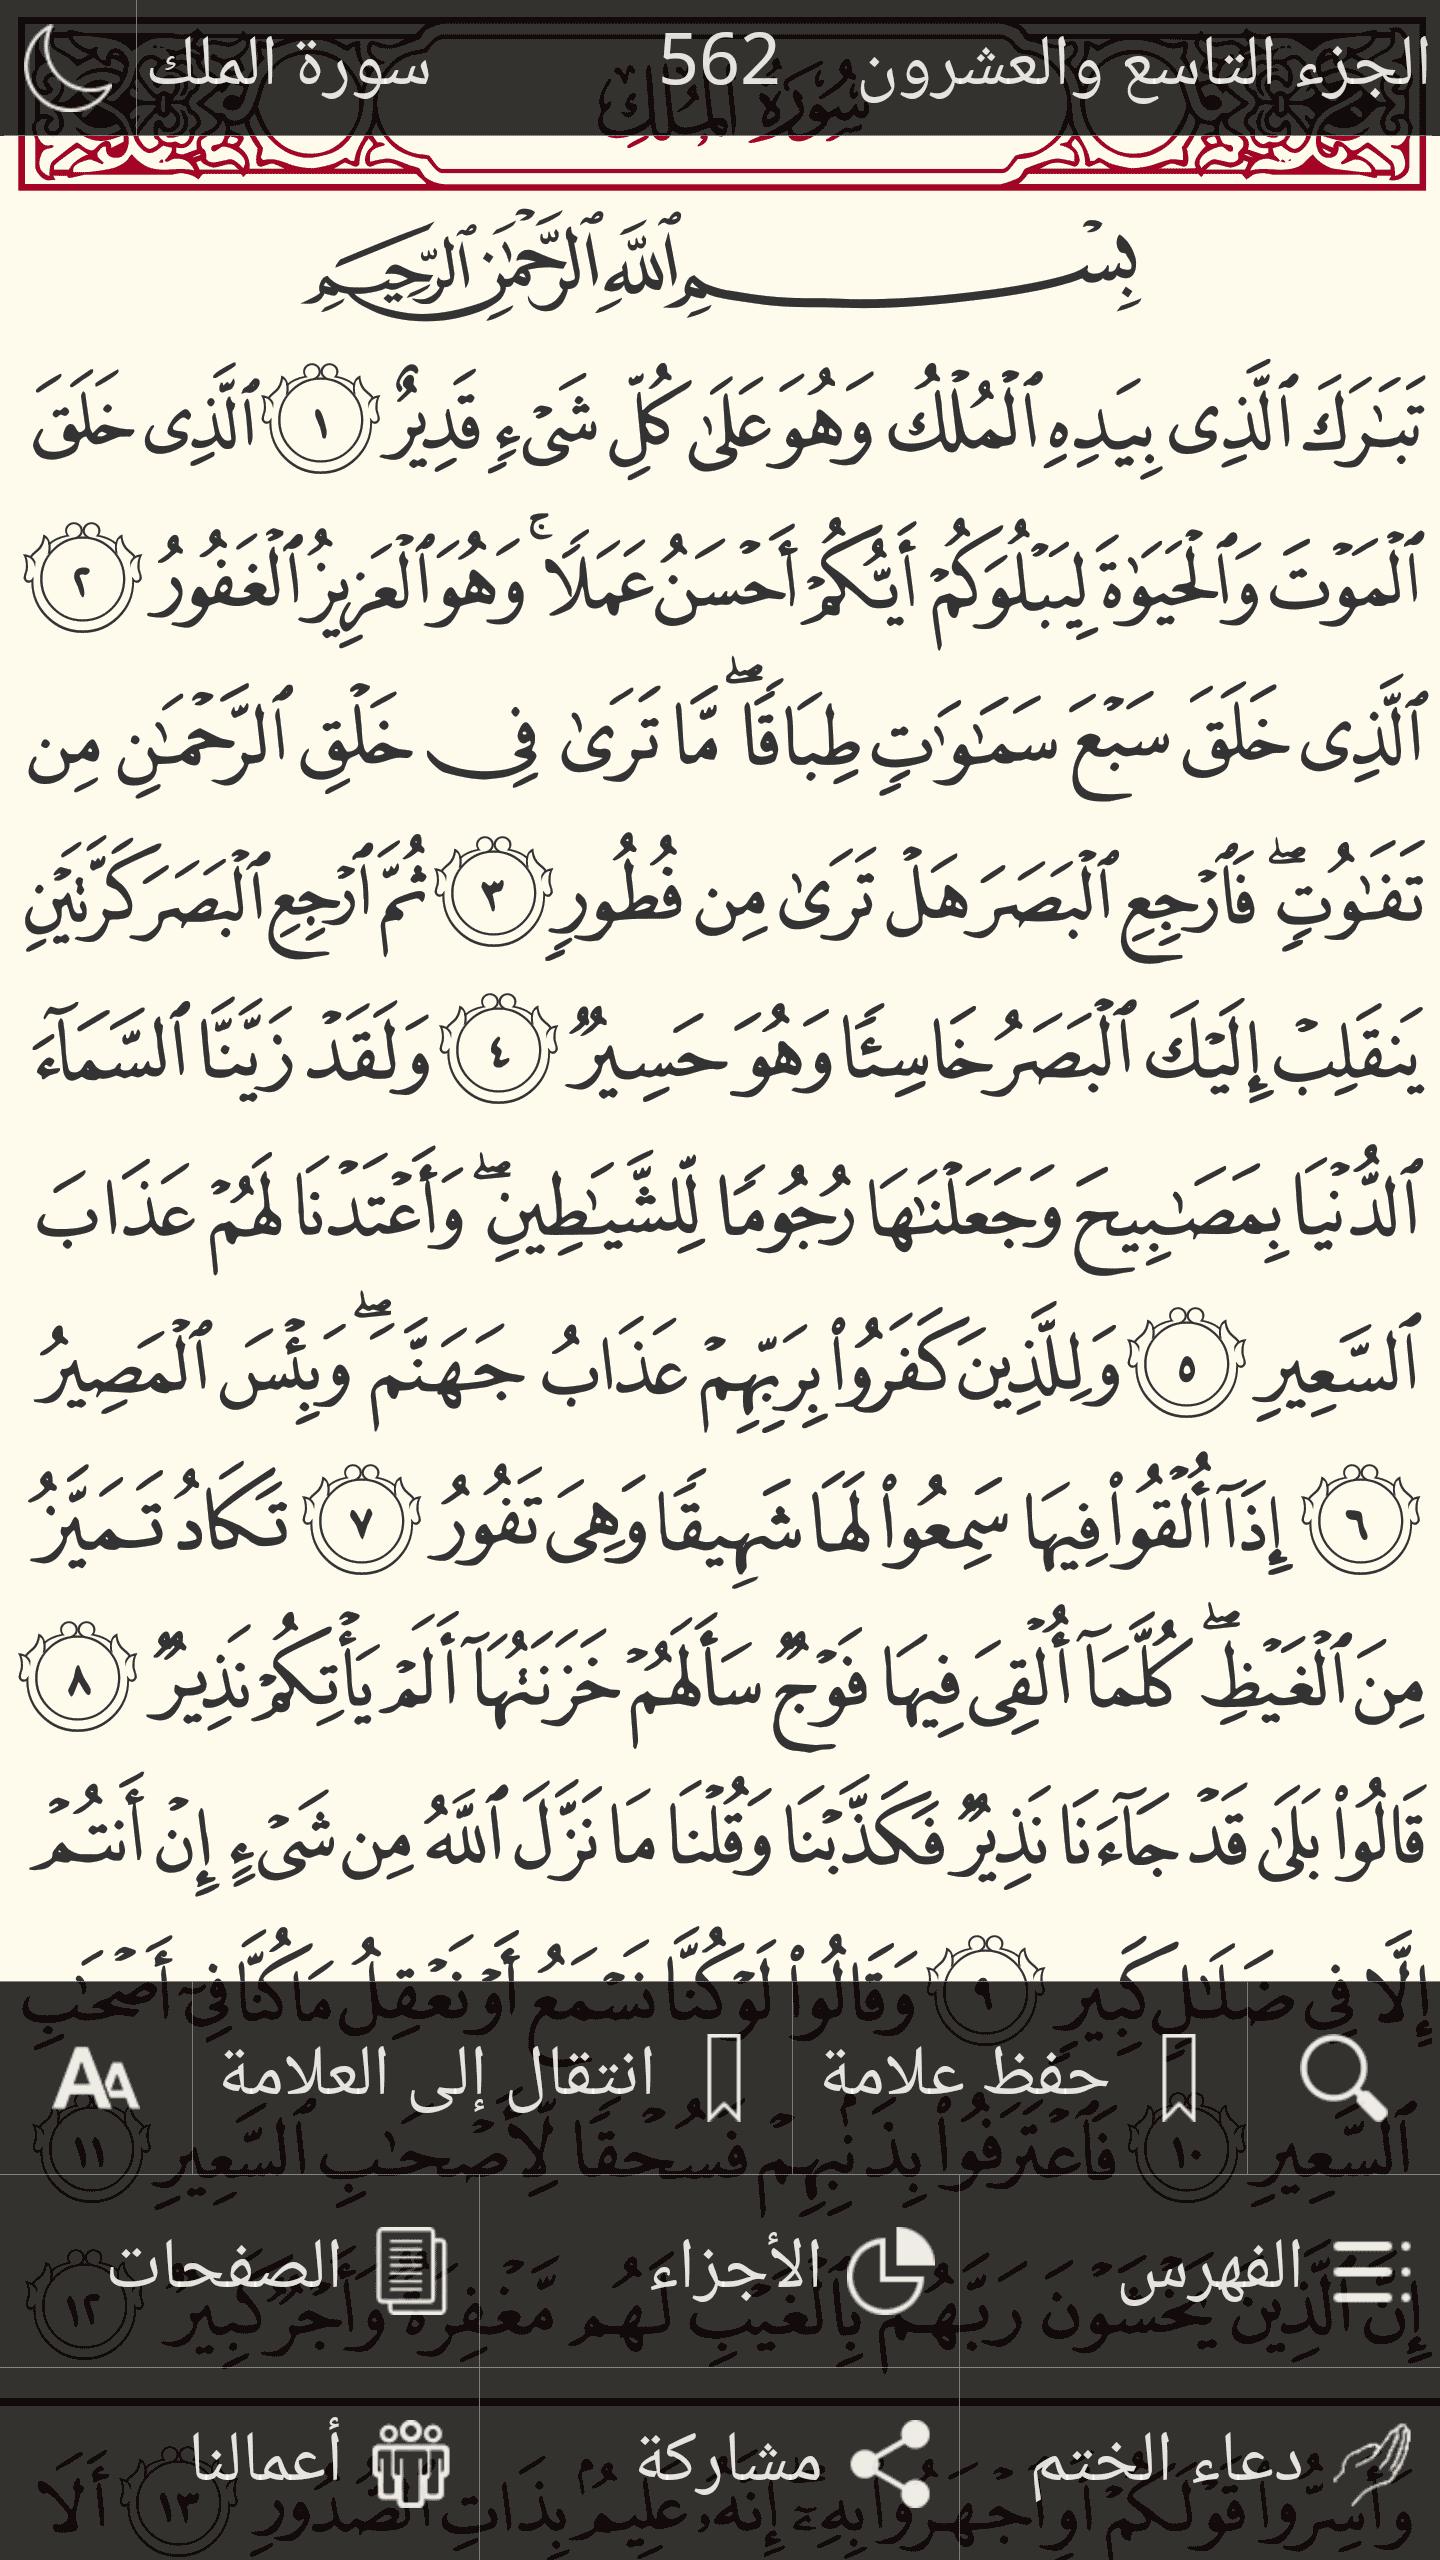 الجزء التاسع والعشرون 562 سورة الملك
سُورَةُ المُلك
بِسْمِ ٱللَّهِ ٱلرَّحْمَٰنِ ٱلرَّحِيمِ
تَبَٰرَكَ ٱلَّذِى بِيَدِهِ ٱلْمُلْكُ وَهُوَ عَلَىٰ كُلِّ شَىْءٍ قَدِيرٌ ١ ٱلَّذِى خَلَقَ
ٱلْمَوْتَ وَٱلْحَيَوٰةَ لِيَبْلُوَكُمْ أَيُّكُمْ أَحْسَنُ عَمَلًا ۚ وَهُوَ ٱلْعَزِيزُ ٱلْغَفُورُ ٢
ٱلَّذِى خَلَقَ سَبْعَ سَمَٰوَٰتٍ طِبَاقًا ۖ مَّا تَرَىٰ فِى خَلْقِ ٱلرَّحْمَٰنِ مِن
تَفَٰوُتٍ ۖ فَٱرْجِعِ ٱلْبَصَرَ هَلْ تَرَىٰ مِن فُطُورٍ ٣ ثُمَّ ٱرْجِعِ ٱلْبَصَرَ كَرَّتَيْنِ
يَنقَلِبْ إِلَيْكَ ٱلْبَصَرُ خَاسِئًا وَهُوَ حَسِيرٌ ٤ وَلَقَدْ زَيَّنَّا ٱلسَّمَآءَ
ٱلدُّنْيَا بِمَصَٰبِيحَ وَجَعَلْنَٰهَا رُجُومًا لِّلشَّيَٰطِينِ ۖ وَأَعْتَدْنَا لَهُمْ عَذَابَ
ٱلسَّعِيرِ ٥ وَلِلَّذِينَ كَفَرُوا۟ بِرَبِّهِمْ عَذَابُ جَهَنَّمَ ۖ وَبِئْسَ ٱلْمَصِيرُ
٦ إِذَآ أُلْقُوا۟ فِيهَا سَمِعُوا۟ لَهَا شَهِيقًا وَهِىَ تَفُورُ ٧ تَكَادُ تَمَيَّزُ
مِنَ ٱلْغَيْظِ ۖ كُلَّمَآ أُلْقِىَ فِيهَا فَوْجٌ سَأَلَهُمْ خَزَنَتُهَآ أَلَمْ يَأْتِكُمْ نَذِيرٌ ٨
قَالُوا۟ بَلَىٰ قَدْ جَآءَنَا نَذِيرٌ فَكَذَّبْنَا وَقُلْنَا مَا نَزَّلَ ٱللَّهُ مِن شَىْءٍ إِنْ أَنتُمْ
إِلَّا فِى ضَلَٰلٍ كَبِيرٍ ٩ وَقَالُوا۟ لَوْ كُنَّا نَسْمَعُ أَوْ نَعْقِلُ مَا كُنَّا فِىٓ أَصْحَٰبِ
حفظ علامة انتقال إلى العلامة AA
ٱلسَّعِيرِ ١٠ فَٱعْتَرَفُوا۟ بِذَنۢبِهِمْ فَسُحْقًا لِّأَصْحَٰبِ ٱلسَّعِيرِ ١١
الفهرس الأجزاء الصفحات
إِنَّ ٱلَّذِينَ يَخْشَوْنَ رَبَّهُم بِٱلْغَيْبِ لَهُم مَّغْفِرَةٌ وَأَجْرٌ كَبِيرٌ ١٢
دعاء الختم مشاركة أعمالنا
وَأَسِرُّوا۟ قَوْلَكُمْ أَوِ ٱجْهَرُوا۟ بِهِۦٓ ۖ إِنَّهُۥ عَلِيمٌۢ بِذَاتِ ٱلصُّدُورِ ١٣ أَلَا